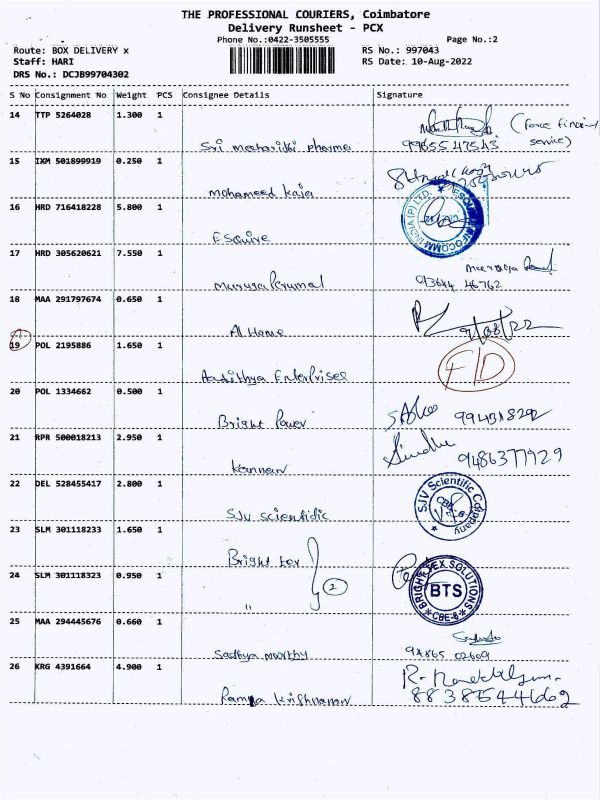 THE PROFESSIONAL COURIERS, Coimbatore
Delivery Runsheet - PCX
Phone No.:0422-3505555
Page No.:2
Route: BOX DELIVERY x
RS No.: 997043
Staff: HARI
RS Date: 10-Aug-2022
DRS No.: DCJB99704302
S No Consignment No Weight PCS Consignee Details Signature
14 TTP 5264028 1.300 1
(force financial service)
Sri meenakshi pharma
15 IXM 501899919 0.250 1
mohameed kaja
16 HRD 716418228 5.800 1
Esquire
17 HRD 305620621 7.550 1
Murugaperumal 93644 46762
18 MAA 291797674 0.650 1
At Home
19 POL 2195886 1.650 1
Aadithya Enterprises F/D
20 POL 1334662 0.500 1
Bright Power
21 RPR 500018213 2.950 1
kannan 9486377929
22 DEL 528455417 2.800 1
SJV scientific SJV Scientific Company
23 SLM 301118233 1.650 1
Bright tex
24 SLM 301118323 0.950 1
" 2 BRIGHT TEX SOLUTIONS BTS CBE-6
25 MAA 294445676 0.660 1
Sathya moorthy
26 KRG 4391664 4.900 1
Ramya krishnanan 88387544602